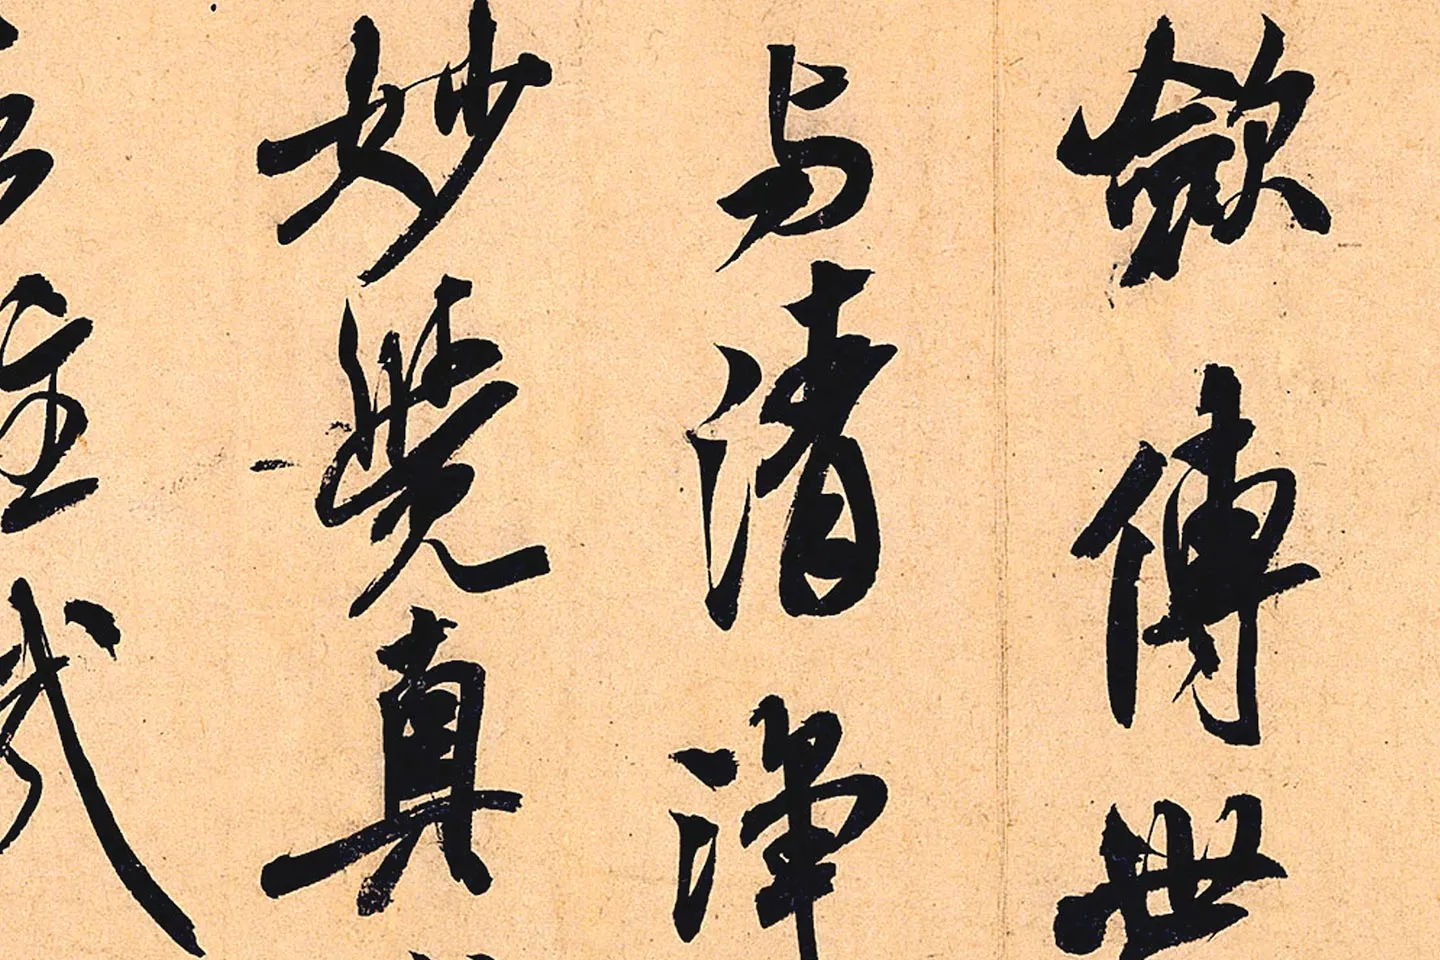 歛傳世
与清淨
妙覺真